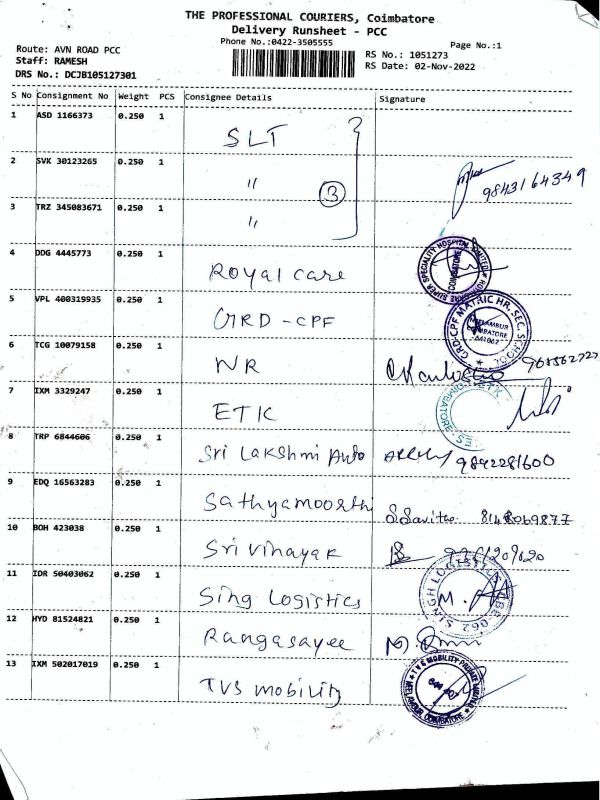 THE PROFESSIONAL COURIERS, Coimbatore
Delivery Runsheet - PCC
Phone No.:0422-3505555
Page No.:1
Route: AVN ROAD PCC
RS No.: 1051273
Staff: RAMESH
RS Date: 02-Nov-2022
DRS No.: DCJB105127301
S No Consignment No Weight PCS Consignee Details Signature
1 ASD 1166373 0.250 1 SLT
2 SVK 30123265 0.250 1 " 3 9843164349
3 TRZ 345083671 0.250 1 "
4 DDG 4445773 0.250 1 Royal care
5 VPL 400319935 0.250 1 GRD-CPF GRD-CPF MATRIC HR. SEC. SCHOOL COIMBATORE
6 TCG 10079158 0.250 1 WR
7 IXM 3329247 0.250 1 ETK
8 TRP 6844606 0.250 1 Sri Lakshmi Auto 9842281600
9 EDQ 16563283 0.250 1 Sathyamoorth S.Savitha 8148069877
10 BOH 423038 0.250 1 Sri Vinayak
11 IDR 50403062 0.250 1 Sing Logistics SINGH LOGISTICS
12 HYD 81524821 0.250 1 Rangasayee
13 IXM 502017019 0.250 1 TVS mobility TVS MOBILITY PRIVATE LIMITED COIMBATORE